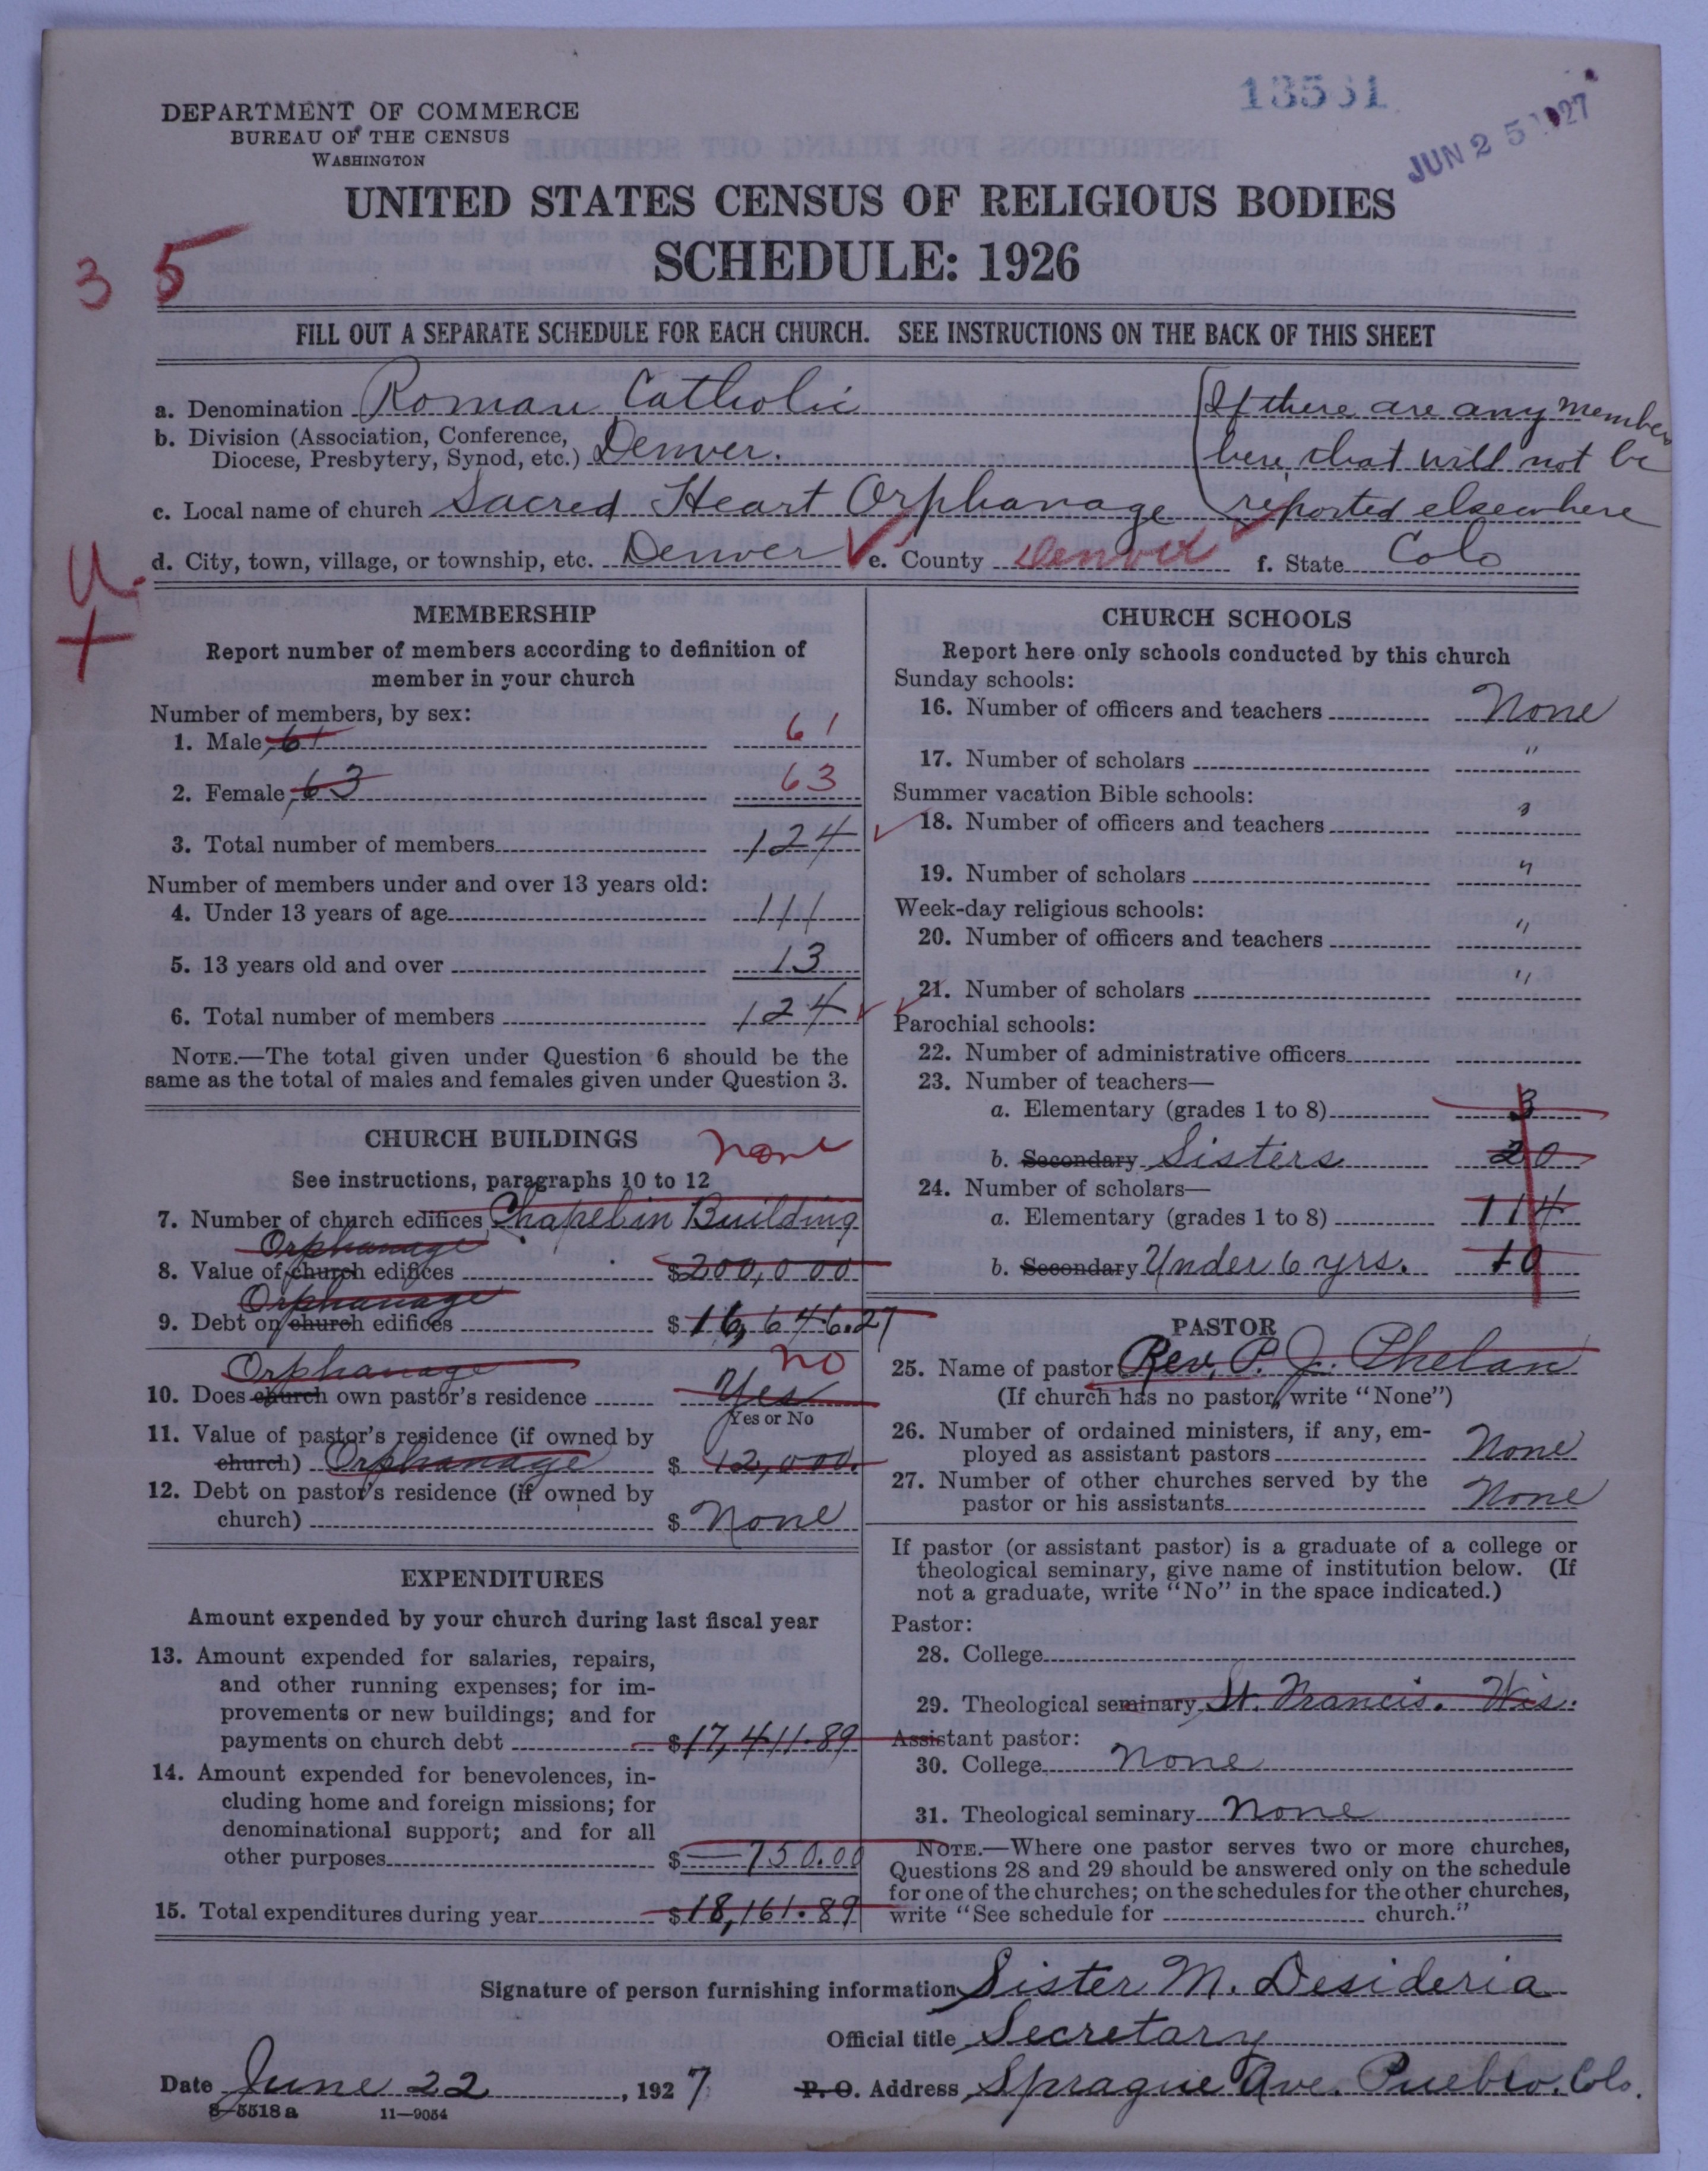 13561
JUN 25 1927
DEPARTMENT OF COMMERCE
BUREAU OF THE CENSUS
WASHINGTON
UNITED STATES CENSUS OF RELIGIOUS BODIES
SCHEDULE: 1926
3 5
FILL OUT A SEPARATE SCHEDULE FOR EACH CHURCH. SEE INSTRUCTIONS ON THE BACK OF THIS SHEET
a. Denomination Roman Catholic
b. Division (Association, Conference,
Diocese, Presbytery, Synod, etc.) Denver.
(If there are any members
here that will not be
reported elsewhere
c. Local name of church Sacred Heart Orphanage
d. City, town, village, or township, etc. Denver e. County Denver f. State Colo
U.
+
MEMBERSHIP
Report number of members according to definition of
member in your church
Number of members, by sex:
1. Male, 61 61
2. Female, 63 63
3. Total number of members 124
Number of members under and over 13 years old:
4. Under 13 years of age 111
5. 13 years old and over 13
6. Total number of members 124
NOTE.—The total given under Question 6 should be the
same as the total of males and females given under Question 3.
CHURCH BUILDINGS
none
See instructions, paragraphs 10 to 12
7. Number of church edifices Chapel in Building
Orphanage
8. Value of church edifices $200,000
Orphanage
9. Debt on church edifices $16,646.27
Orphanage no
10. Does church own pastor's residence Yes
Yes or No
11. Value of pastor's residence (if owned by
church) Orphanage $ 12,000.
12. Debt on pastor's residence (if owned by
church) $ None
EXPENDITURES
Amount expended by your church during last fiscal year
13. Amount expended for salaries, repairs,
and other running expenses; for im-
provements or new buildings; and for
payments on church debt $17,411.89
14. Amount expended for benevolences, in-
cluding home and foreign missions; for
denominational support; and for all
other purposes $—750.00
15. Total expenditures during year $18,161.89
CHURCH SCHOOLS
Report here only schools conducted by this church
Sunday schools:
16. Number of officers and teachers None
17. Number of scholars "
Summer vacation Bible schools:
18. Number of officers and teachers "
19. Number of scholars "
Week-day religious schools:
20. Number of officers and teachers "
21. Number of scholars "
Parochial schools:
22. Number of administrative officers
23. Number of teachers—
a. Elementary (grades 1 to 8) 3
b. Secondary Sisters 20
24. Number of scholars—
a. Elementary (grades 1 to 8) 114
b. Secondary Under 6 yrs. 10
PASTOR
25. Name of pastor Rev. P. J. Phelan
(If church has no pastor, write "None")
26. Number of ordained ministers, if any, em-
ployed as assistant pastors None
27. Number of other churches served by the
pastor or his assistants None
If pastor (or assistant pastor) is a graduate of a college or
theological seminary, give name of institution below. (If
not a graduate, write "No" in the space indicated.)
Pastor:
28. College
29. Theological seminary St. Francis. Wis.
Assistant pastor:
30. College None
31. Theological seminary None
NOTE.—Where one pastor serves two or more churches,
Questions 28 and 29 should be answered only on the schedule
for one of the churches; on the schedules for the other churches,
write "See schedule for church."
Signature of person furnishing information Sister M. Desideria
Official title Secretary
Date June 22, 1927 P. O. Address Sprague Ave. Pueblo, Colo.
8—5518 a 11—9054